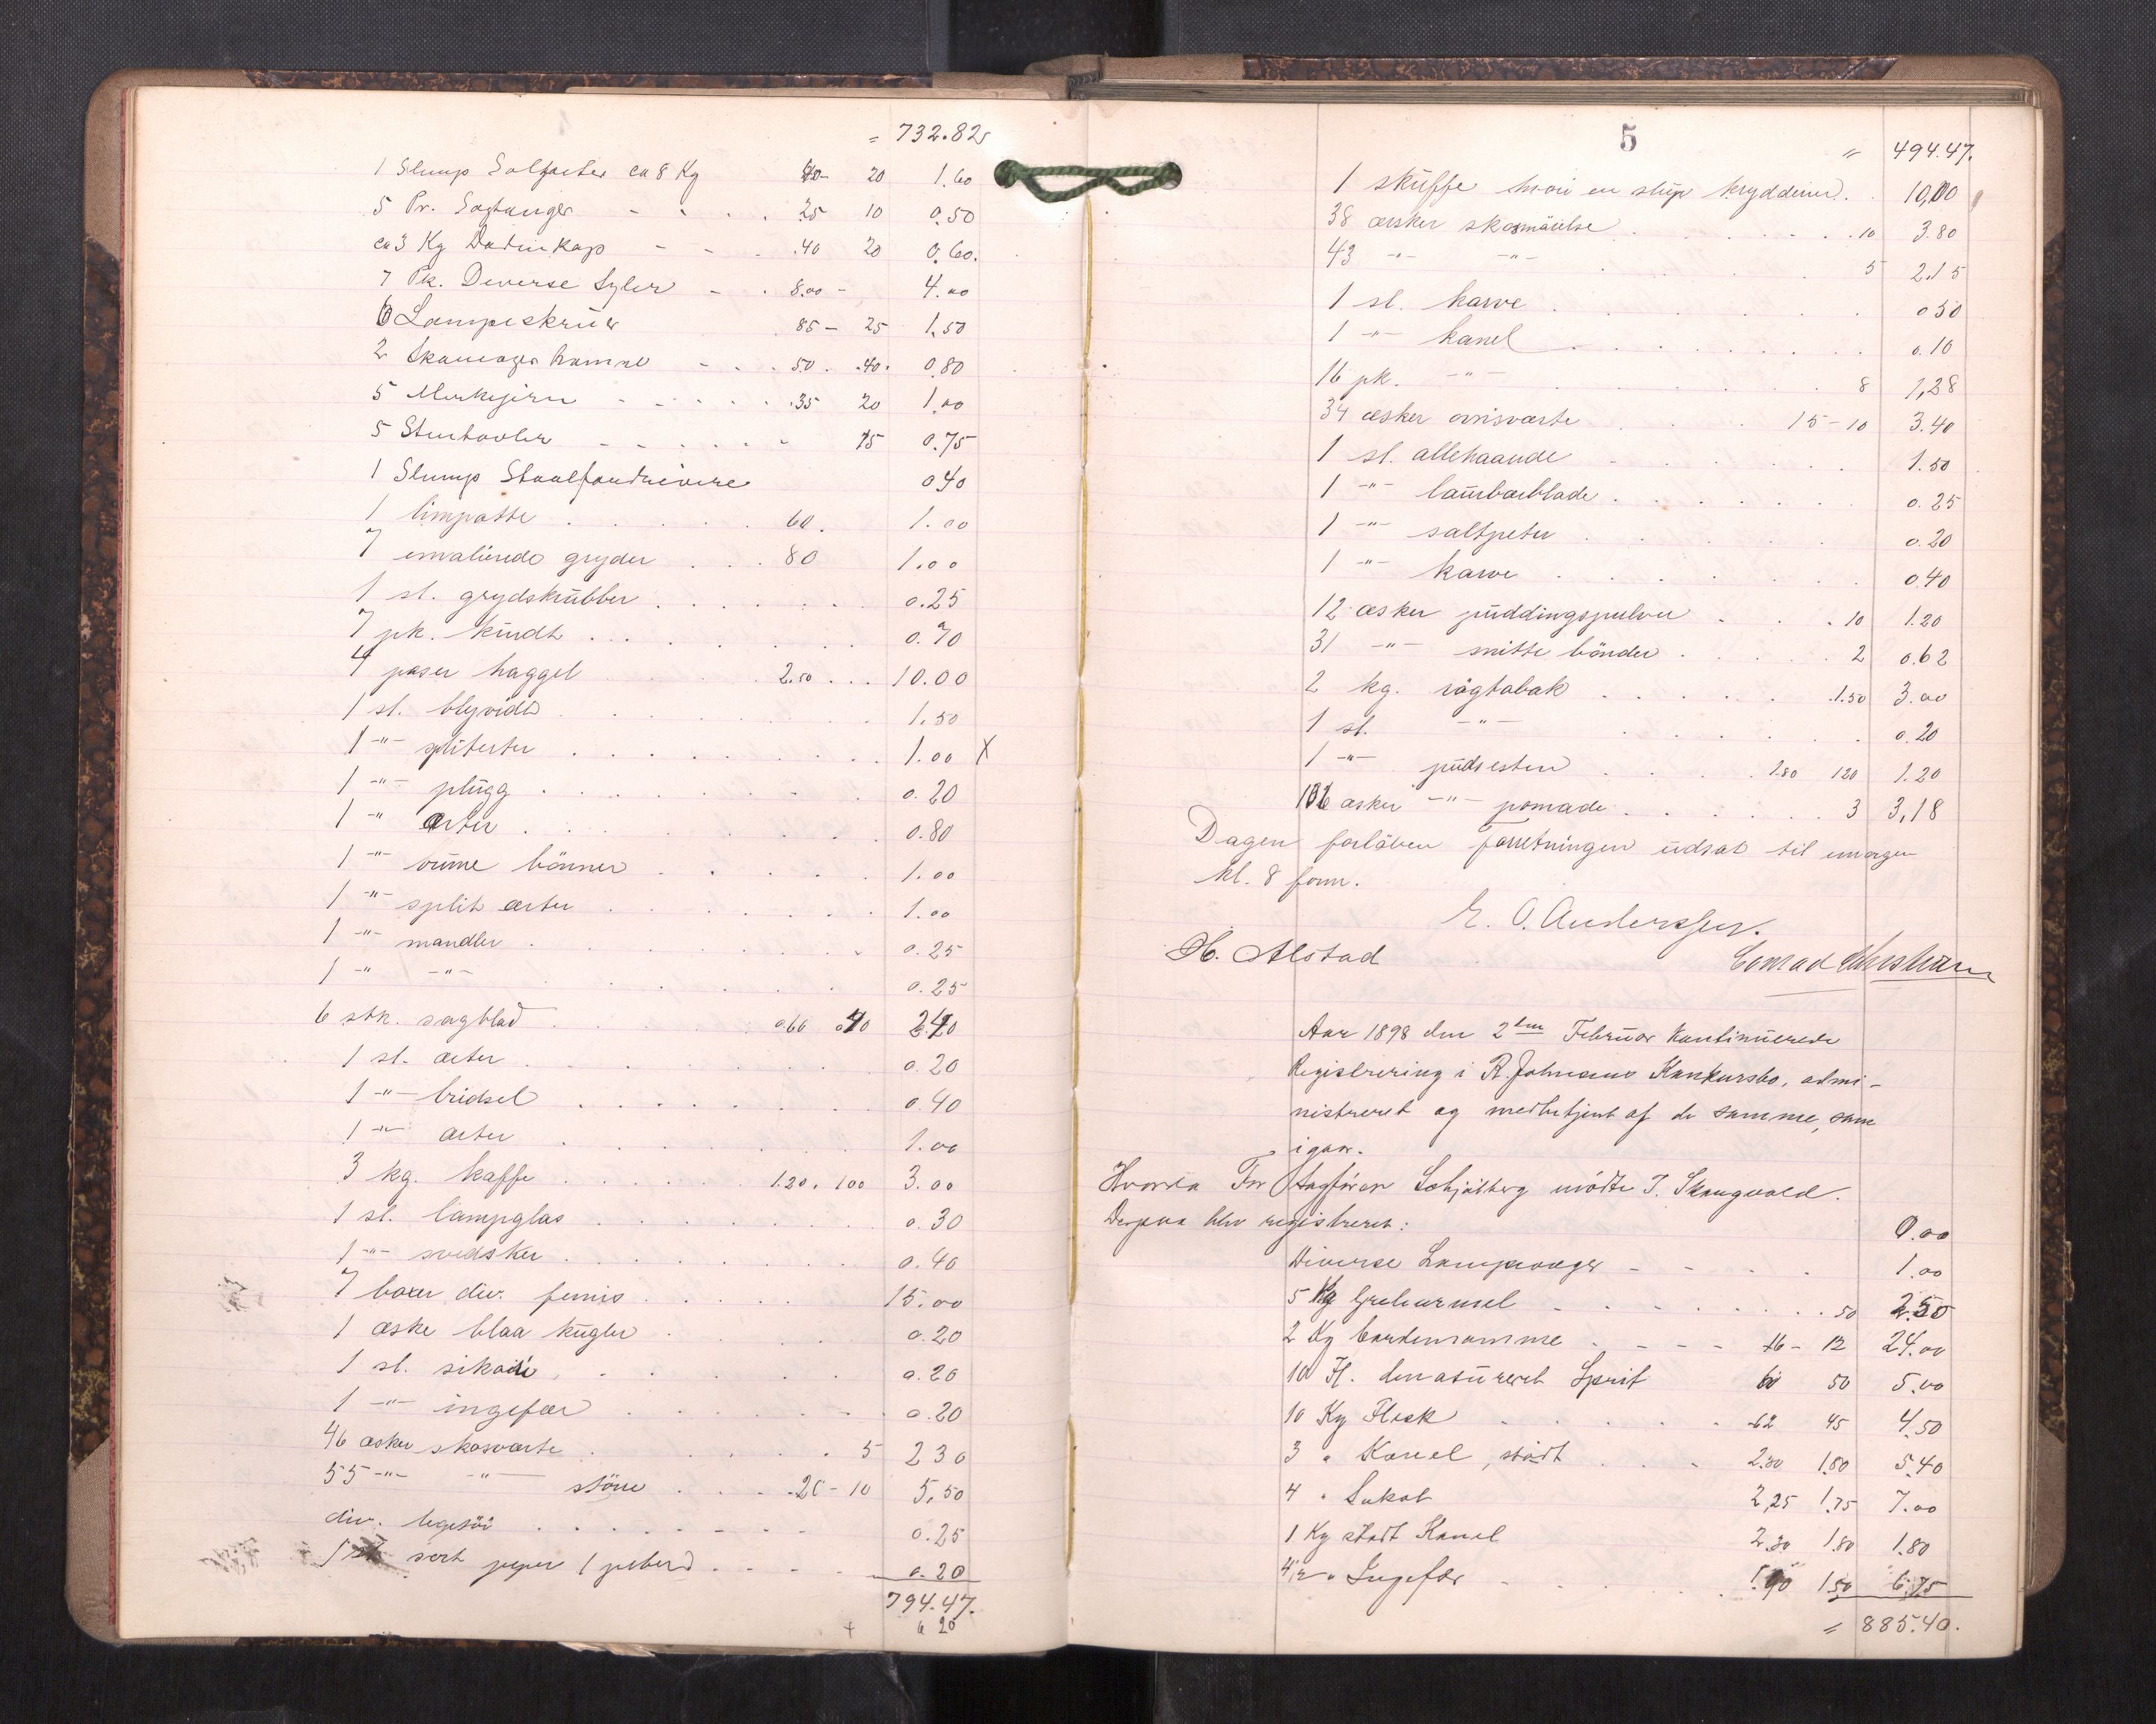 = 732.82
1 Slump Salpeter ca 8 Kg 40- 20 1.60
5 Pr. Saxtanger - - . . 25 10 0.50
ca 3 Kg - - . 40 20 0.60.
7 Pk. Deverse Syler - . 8.00 - 4.00
6 Lampeskruer 85 - 25 1.50
2 Skomager hamre - . . 50 . .40. 0.80
5 Merkejern - - - . . .35 20 1.00
5 - - - - - - 15 0.75
1 Slump 0.40
1 limpotte . . . . . 60. 1.00
7 emalierede gryder . . . 80 1.00
1 sl. grydskrubber . . . . . . 0.25
7 pk. . . . . . . . 0.70
4 poser haggel . . . 2.50 . . . 10.00
1 sl. blyvidt . . . . . . 1.50
1 -"- spliterter . . . . . . . 1.00 X
1 -"- plugg . . . . . . . 0.20
1 -" erter . . . . . . . 0.80
1 -"- brune bönner . . . . . 1.00
1 -"- split erter . . . . . . 1.00
1 -"- mandler . . . . . . 0.25
1 -" -"- . . . . . . 0.25
6 stk. sagblad . . . . . 0.60 0.40 2.40
1 sl. erter . . . . . . . 0.20
1 -"- bidsel . . . . . . . 0.40
1 -"- erter . . . . . . . 1.00
3 kg. kaffe . . . . . . 1.20. 100 3.00
1 sl. lampglas . . . . . . . 0.30
1 -"- svedsker . . . . . . . 0.40
7 boxer div. fernis . . . . . 15.00
1 æske blaa kugler . . . . 0.20
1 sl. sikori . . . . . . 0.20
1 -"- ingefær . . . . . . 0.20
46 æsker skosverte . . . . . . 5 2 30
55 -"- -"- större . . . . 20 - 10 5.50
div. legetöi . . . . . . . . 0.25
1 sl. sort peper 1 peberd . . . . 0.20
794.47.
+ 0 20
5
= 494.47.
1 skuffe hvori en krydderier. . 10,00
38 æsker skosmörelse . . . . . . . . 10 3.80
43 -"- -"- . . . 5 2.15
1 sl. karve . . . . . . . . 0 30
1 -"- kanel . . . . . . . . 0.10
16 pk. -"- . . . . . . . 8 1,28
34 æsker ovnsværte . . . 15 - 10 3.40
1 sl. allehaande . . . . . . 1.50
1 -"- laurbærblade . . . . . . 0.25
1 -"- saltpeter . . . . . . 0.20
1 -"- karve . . . . . . . 0.40
12 æsker puddingspulver . . . 10 1.20
31 -"- snitte bönder . . . . 2 0.62
2 kg. rögtabak . . . . . 1.50 3.00
1 sl. -"- . . . . . . 0.20
1 -"- pudsesten . . . . 1.80 120 1.20
106 æsker -"- pomade . . . . . . 3 3,18
Dagen forlöben Forretningen udsat til imorgen
kl. 8 form.
E. O. Anderssen.
H. Alstad Conrad Christiansen
Aar 1898 den 2den Februar kontinuerede
Registrering i R. Johnsens Konkursbo, admi-
nistreret og medbetjent af de samme, som
igaar.
Hvorda For Sagförer Schjölberg mödte J. Skaugvold.
Derpaa blev registreret: 0.00
Diverse Lampvæger - - - . 1.00
5 Kg - - . . . . . . 50 2.50
2 Kg Cardemomme . - - - 16 - 12 24.00
10 Fl. denatureret Sprit 60 50 5.00
10 Kg Flesk . . . . . - 62 45 4.50
3 " Kanel, stödt . . . 2.30 1.80 5.40
4 " Sukat 2,25 1.75 7.00
1 Kg stödt Kanel 2.30 1.80 1.80
4 1/2 " Ingefær - . . . . 1.90 1.50 6.75
= 885.40.